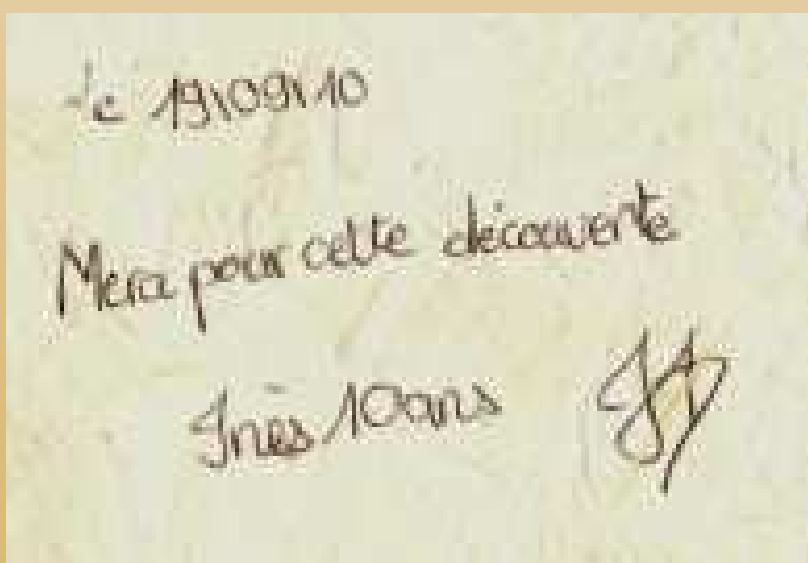 le 19\09\10
Merci pour cette découverte
Inès 10 ans